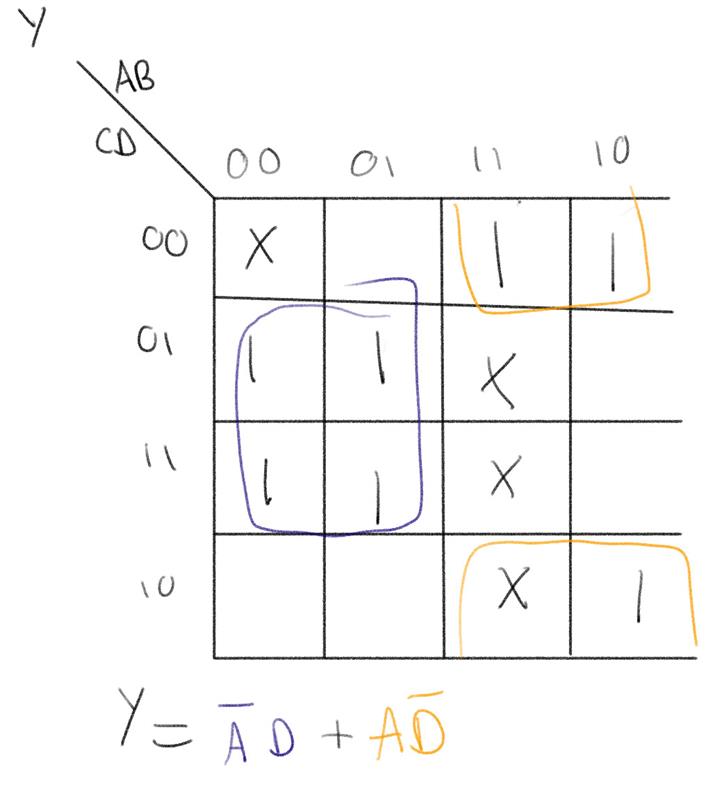 Y
AB
CD
00 01 11 10
00 X 1 1
01 1 1 X
11 1 1 X
10 X 1
Y = A̅ D + A D̅